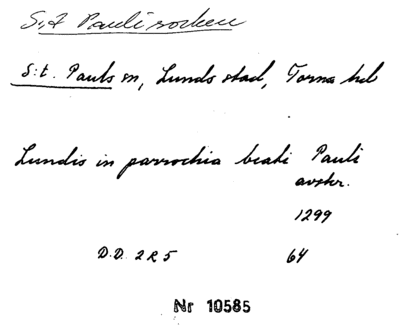 S:t Pauli socken
S:t. Pauls sn, Lunds stad, Torna hd
Lundis in parrochia beati Pauli
avskr.
1299
D.D. 2 R 5 64
Nr 10585